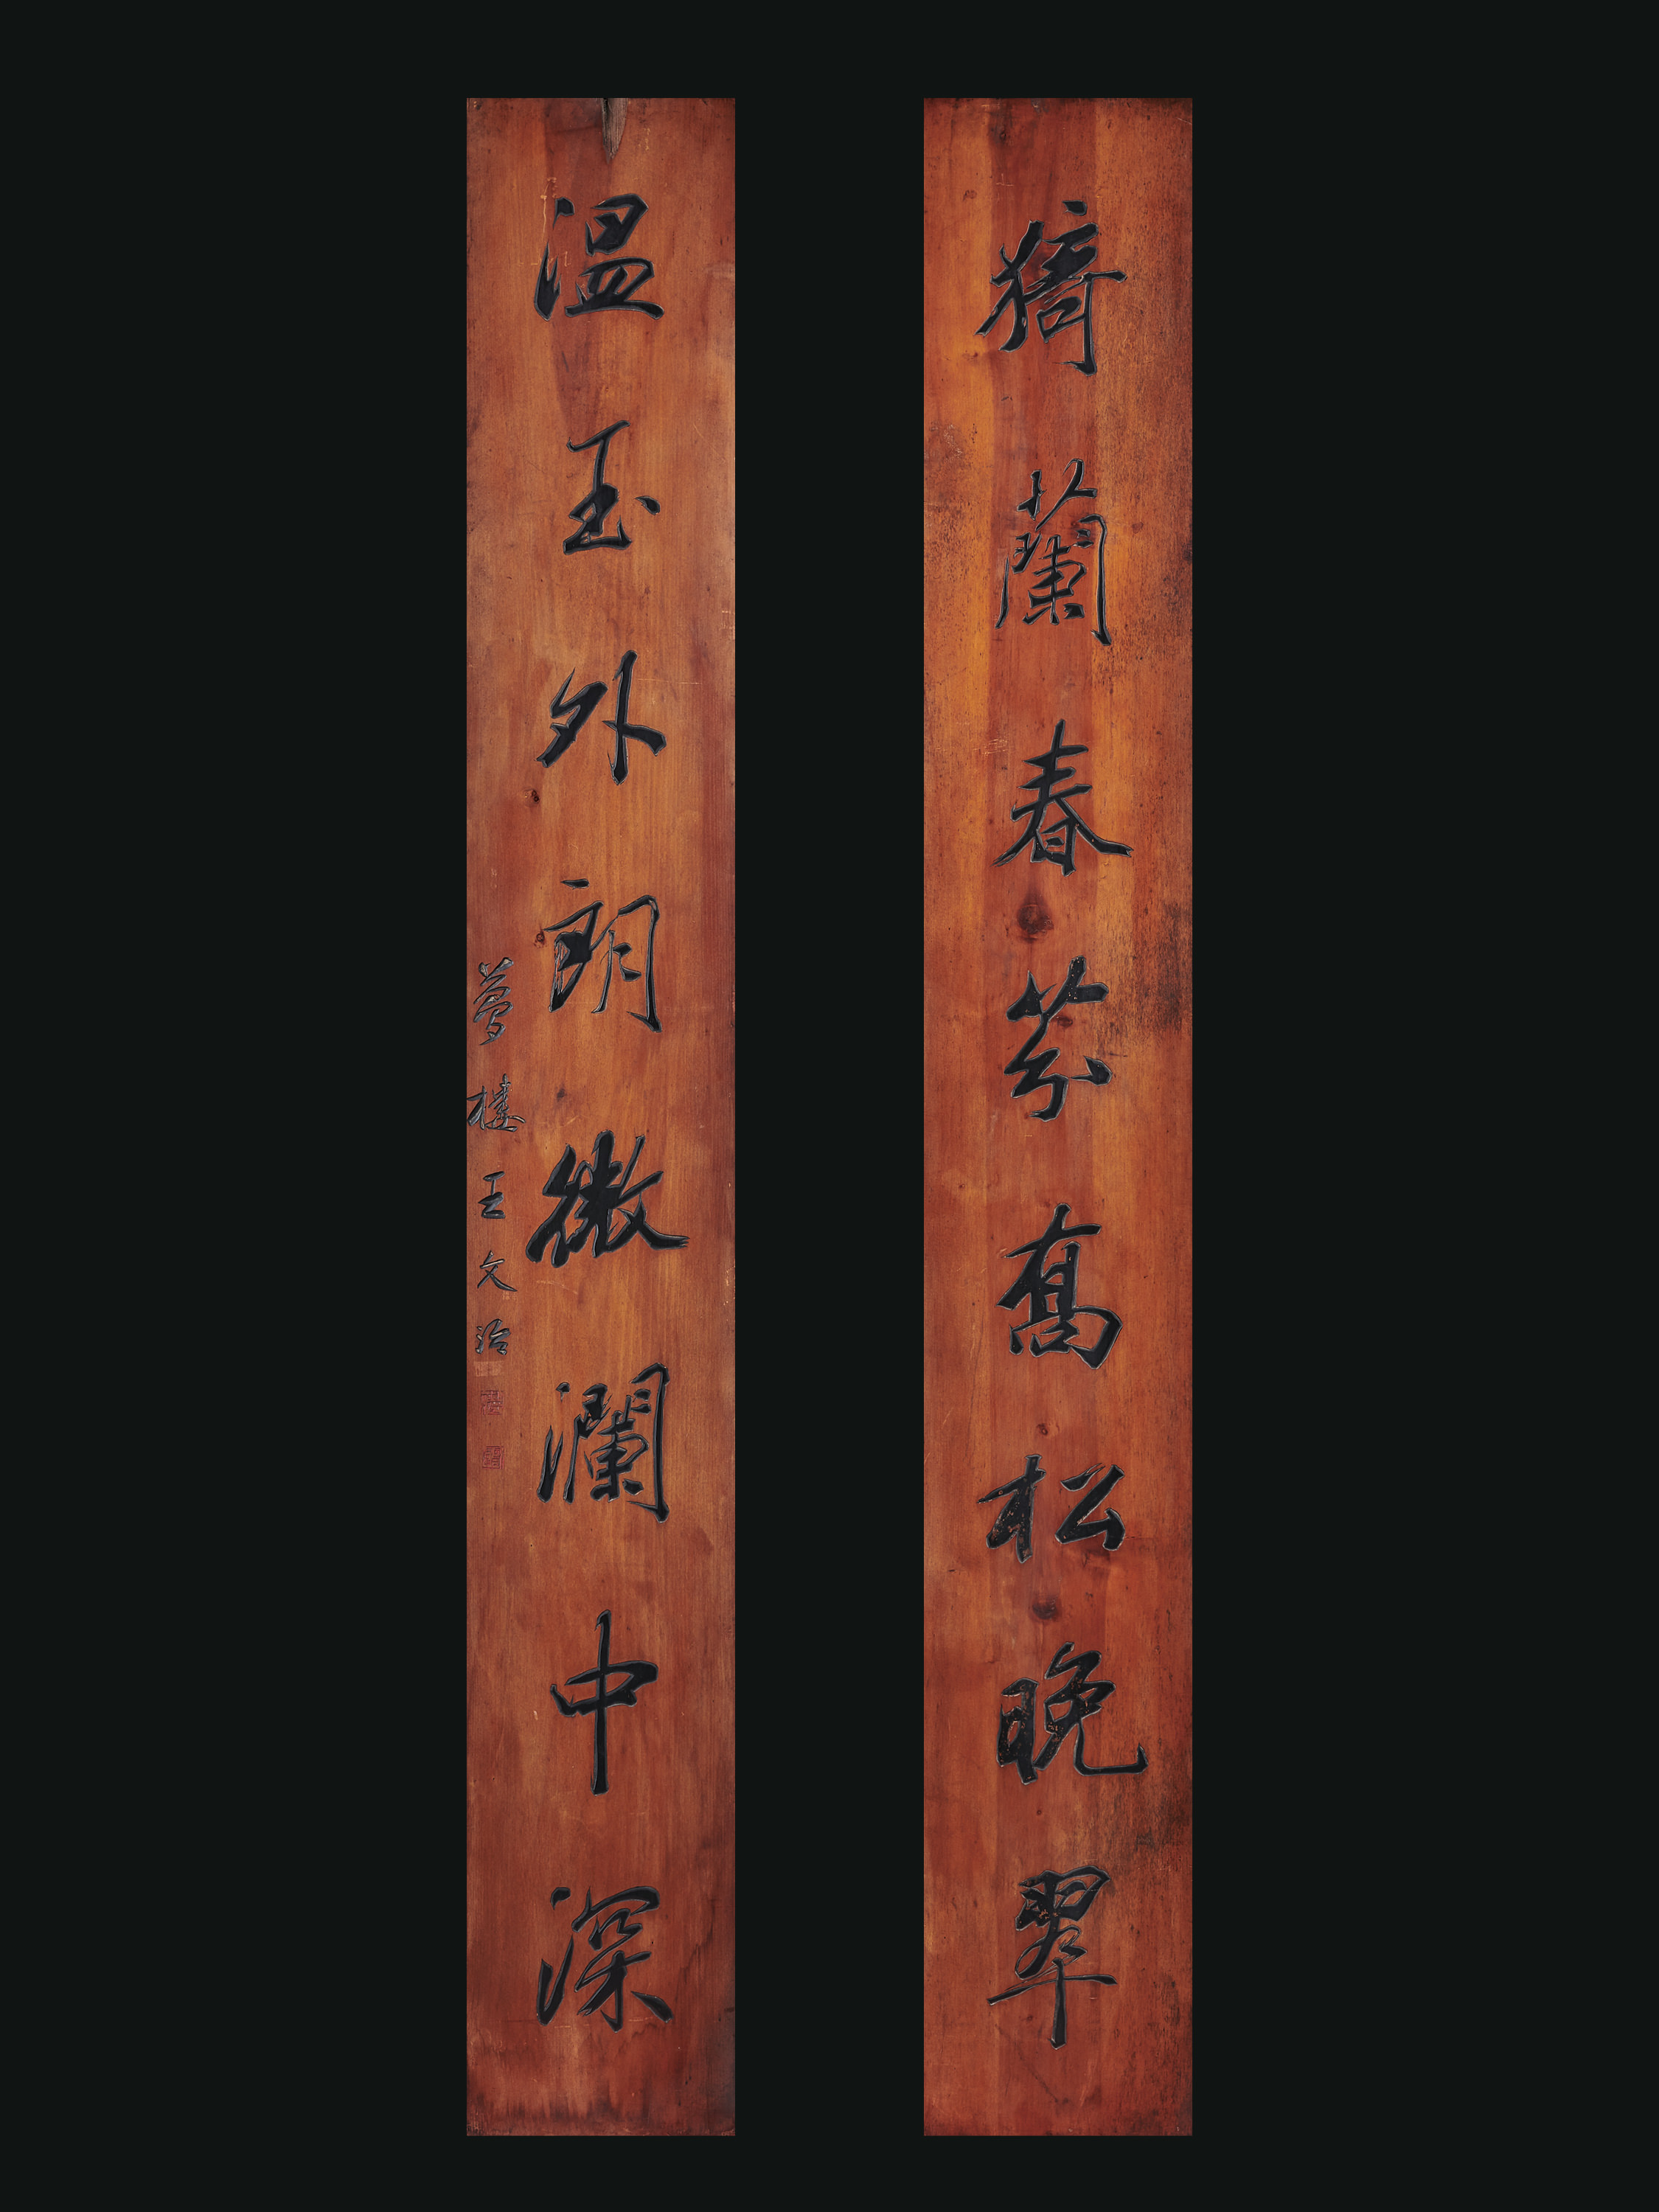 猗蘭春芬高松晚翠
溫玉外朗微瀾中深
夢樓王文治